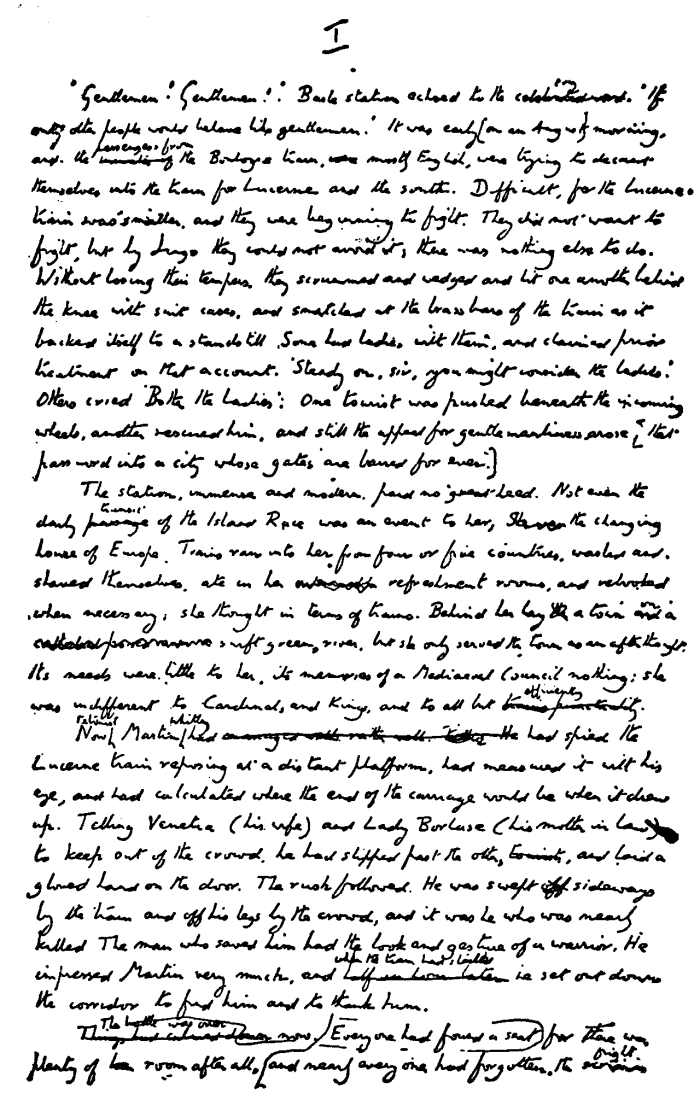 I
"Gentlemen! Gentlemen!" Basle station echoed to the word. "If
only other people would behave like gentlemen." It was early [on an August] morning,
and the passengers from the Boulogne train, mostly English, were trying to decant
themselves into the train for Lucerne and the south. Difficult, for the Lucerne
train was smaller, and they were beginning to fight. They did not want to
fight, but by Jingo they could not avoid it; there was nothing else to do.
Without losing their tempers, they screamed and wedged and hit one another behind
the knee with suit cases, and snatched at the brass bars of the train as it
backed itself to a standstill. Some had ladies with them, and claimed prior
treatment on that account. "Steady on, sir, you might consider the ladies".
Others cried "Bother the ladies": One tourist was pushed beneath the incoming
wheels, another rescued him, and still the appeal for gentlemanliness arose, that
pass word into a city whose gates are barred for ever.]
The station, immense and modern, paid no great heed. Not even the
daily transit of the Island Race was an event to her, the changing
house of Europe. Trains ran into her from four or five countries, washed and
shaved themselves, ate in her refreshment rooms, and rebooked
when necessary; she thought in terms of trains. Behind her lay a town and a
swift green river, but she only served the town as an afterthought.
Its needs were little to her, its memories of a Mediaeval Council nothing; she
was indifferent to Cardinal, and King, and to all but efficiency.
Now Martin had He had spied the
Lucerne train reposing at a distant platform, had measured it with his
eye, and had calculated where the end of the carriage would be when it drew
up. Telling Venetia (his wife) and Lady Borlase (his mother in law)
to keep out of the crowd, he had slipped past the other tourists, and laid a
gloved hand on the door. The rush followed. He was swept sideways
by the train and off his legs by the crowd, and it was he who was nearly
killed. The man who saved him had the look and gesture of a warrior. He
impressed Martin very much, and when the train had started he set out down
the corridor to find him and to thank him.
The battle was over now. Everyone had found a seat for there was
plenty of room after all, [and nearly everyone had forgotten the fright.